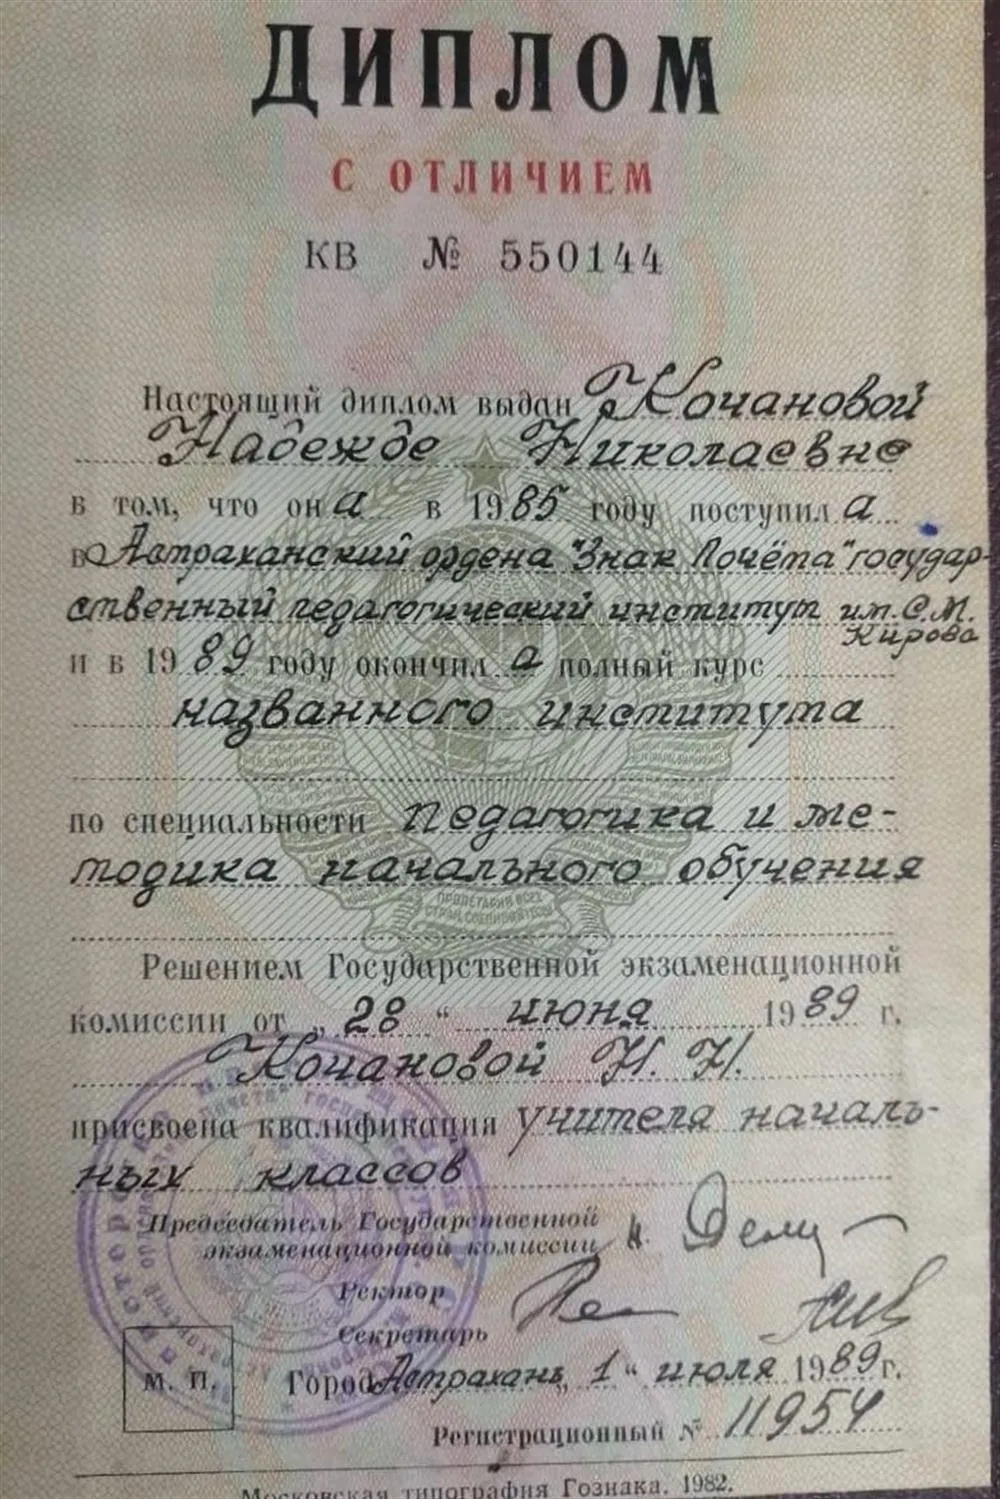 ДИПЛОМ
С ОТЛИЧИЕМ
КВ № 550144
Настоящий диплом выдан Кочановой
Надежде Николаевне
в том, что она в 1985 году поступила
в Астраханский ордена "Знак Почёта" государ-
ственный педагогический институт им. С.М.
Кирова
и в 1989 году окончила полный курс
названного института
по специальности педагогика и ме-
тодика начального обучения
Решением Государственной экзаменационной
комиссии от „28“ июня 1989 г.
Кочановой Н. Н.
присвоена квалификация учителя началь-
ных классов
Председатель Государственной
экзаменационной комиссии
Ректор
Секретарь
М. П. Город Астрахань „1“ июля 1989 г.
Регистрационный № 11954
Московская типография Гознака. 1982.